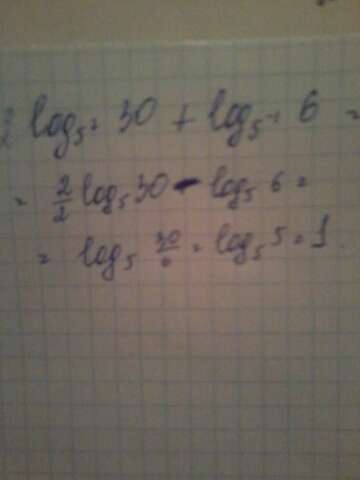 2 log₅² 30 + log₅⁻¹ 6 =
= 2/2 log₅ 30 - log₅ 6 =
= log₅ 30/6 = log₅ 5 = 1